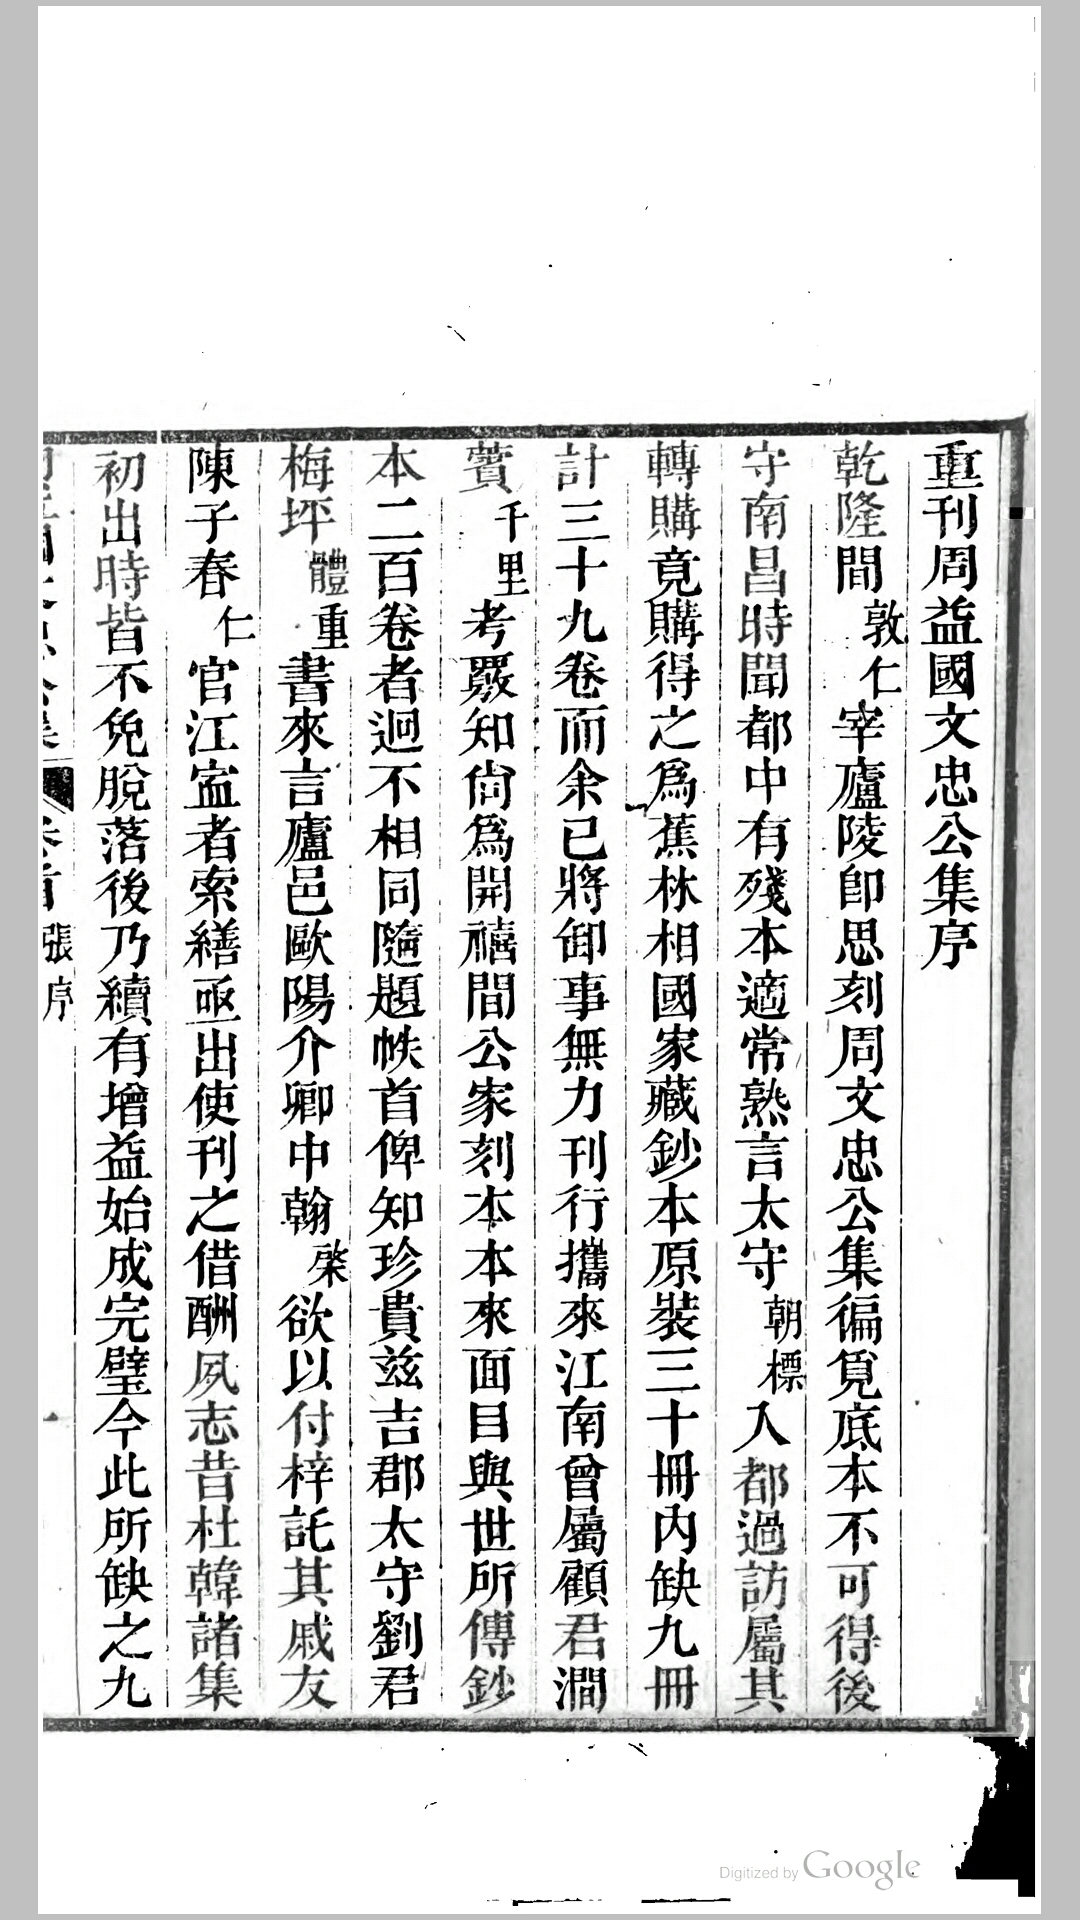 重刊周益國文忠公集序
乾隆間敦仁宰廬陵卽思刻周文忠公集徧覓底本不可得後
守南昌時聞都中有殘本適常熟言太守朝標入都過訪屬其
轉購竟購得之爲蕉林相國家藏鈔本原裝三十冊內缺九冊
計三十九卷而余已將卸事無力刊行攜來江南曾屬顧君澗
薲千里考覈知尙爲開禧間公家刻本本來面目與世所傳鈔
本二百卷者迥不相同隨題帙首俾知珍貴茲吉郡太守劉君
梅坪體重書來言廬邑歐陽介卿中翰棨欲以付梓託其戚友
陳子春仁官江寍者索繕亟出使刊之借酬夙志昔杜韓諸集
初出時皆不免脫落後乃續有增益始成完璧今此所缺之九
卷首 張序 一
Digitized by Google